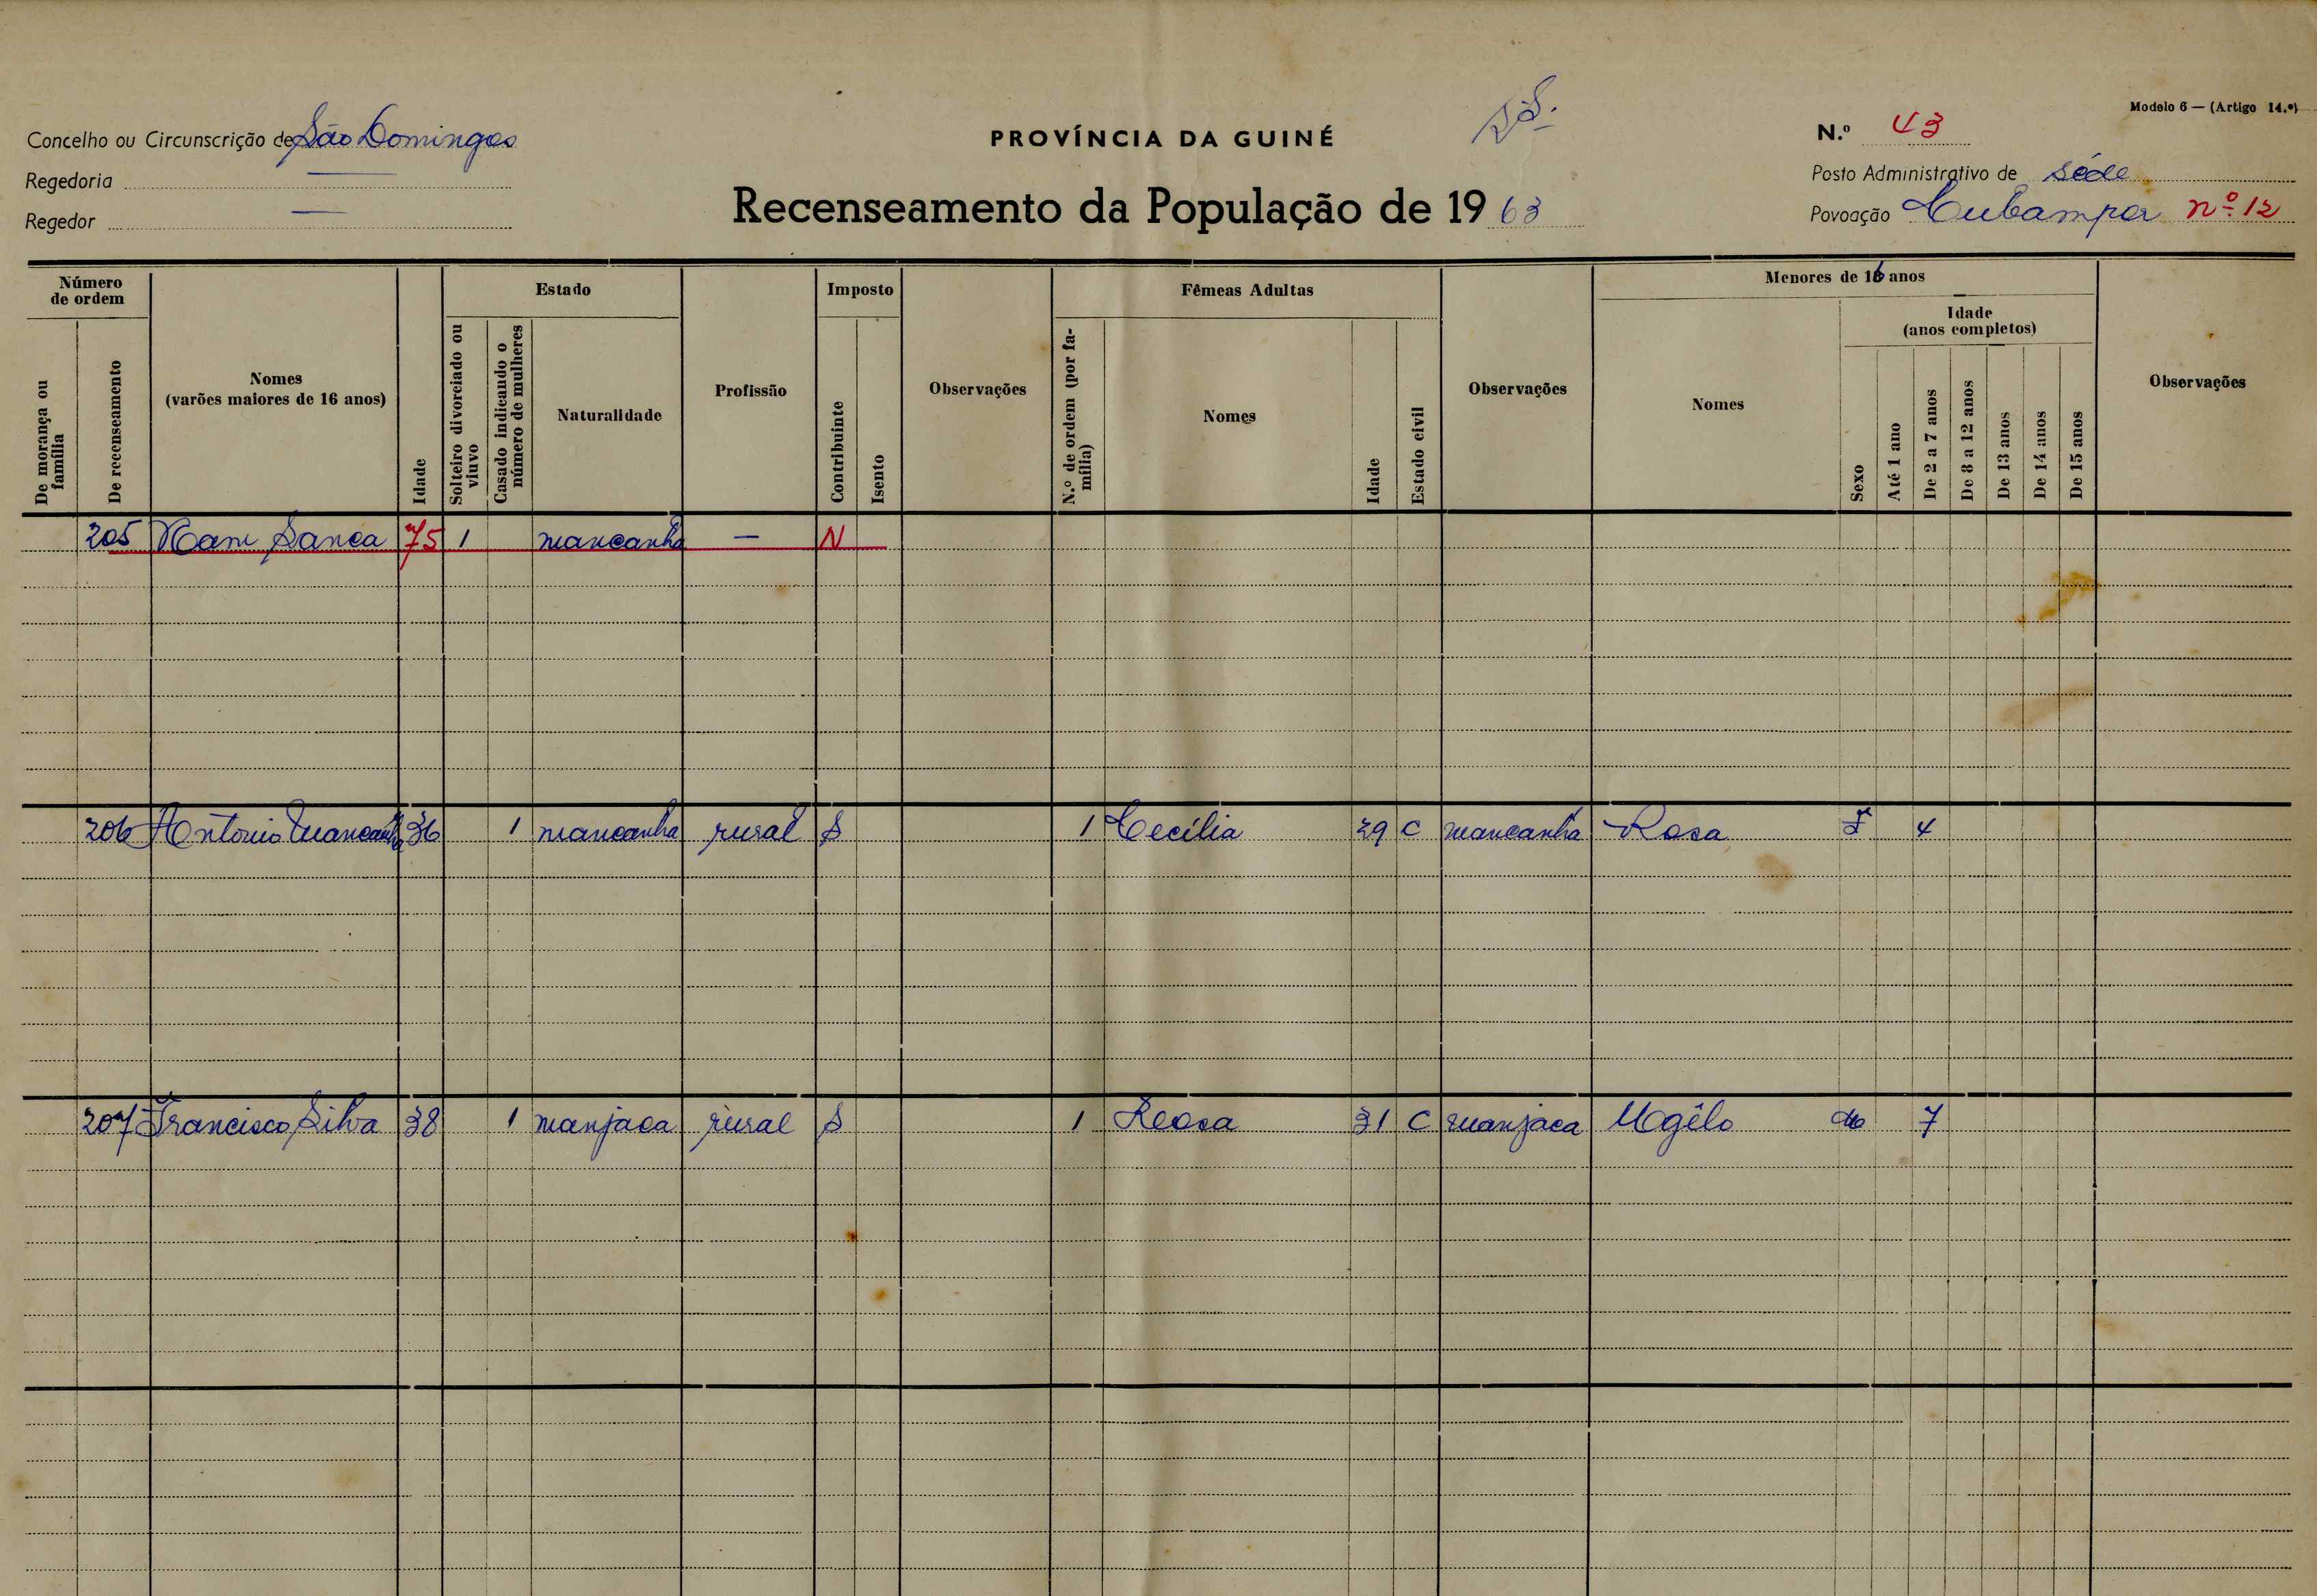 Modelo 6 — (Artigo 14.º)
Concelho ou Circunscrição de São Domingos
PROVÍNCIA DA GUINÉ
N.º 43
Regedoria —
Posto Administrativo de Séde
Regedor —
Recenseamento da População de 1963
Povoação Cubampor nº 12
Número de ordem
De morança ou família
De recenseamento
Nomes
(varões maiores de 16 anos)
Idade
Estado
Solteiro divorciado ou viuvo
Casado indicando o número de mulheres
Naturalidade
Profissão
Imposto
Contribuinte
Isento
Observações
Fêmeas Adultas
N.º de ordem (por família)
Nomes
Idade
Estado civil
Observações
Menores de 16 anos
Nomes
Sexo
Idade
(anos completos)
Até 1 ano
De 2 a 7 anos
De 8 a 12 anos
De 13 anos
De 14 anos
De 15 anos
Observações
205 Sanca 75 1 mancanha — N
206 Antonio Mancanha 36 1 mancanha rural S 1 Cecília 29 C mancanha Rosa F 4
207 Francisco Silva 38 1 manjaca rural S 1 31 C manjaca 7